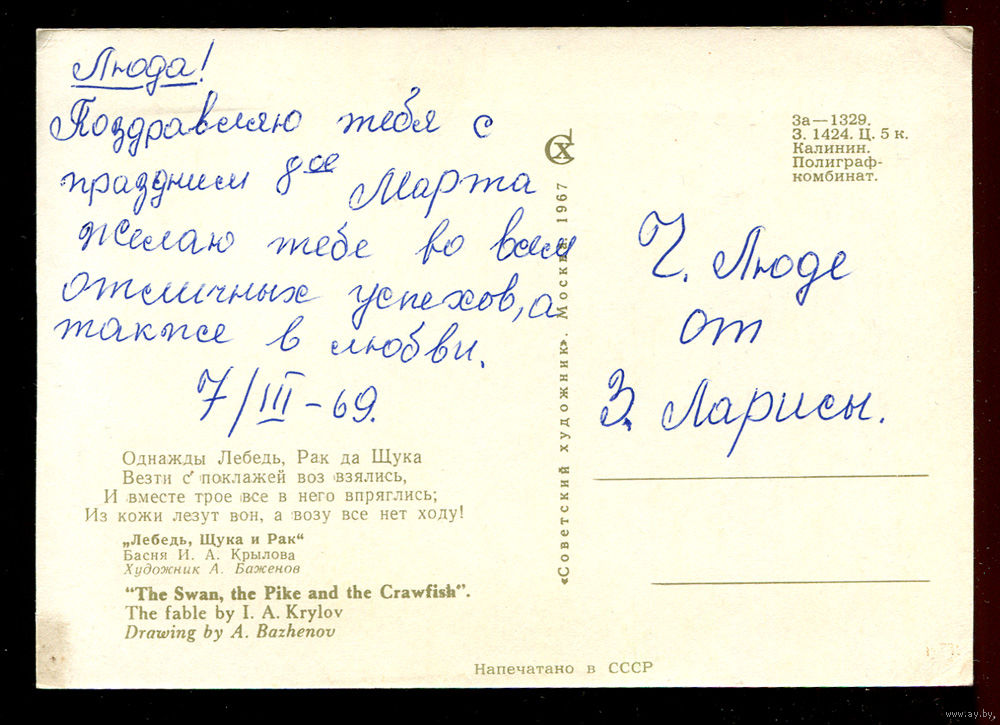 Люда!
Поздравляю тебя с
праздником 8ое Марта
Желаю тебе во всем
отличных успехов, а
также в любви.
7/III – 69.
Однажды Лебедь, Рак да Щука
Везти с поклажей воз взялись,
И вместе трое все в него впряглись;
Из кожи лезут вон, а возу все нет ходу!
„Лебедь, Щука и Рак“
Басня И. А. Крылова
Художник А. Баженов
“The Swan, the Pike and the Crawfish”.
The fable by I. A. Krylov
Drawing by A. Bazhenov
«Советский художник». Москва 1967
СХ
За—1329.
З. 1424. Ц. 5 к.
Калинин.
Полиграф-
комбинат.
Ч. Люде
от
З. Ларисы.
Напечатано в СССР
www.ay.by